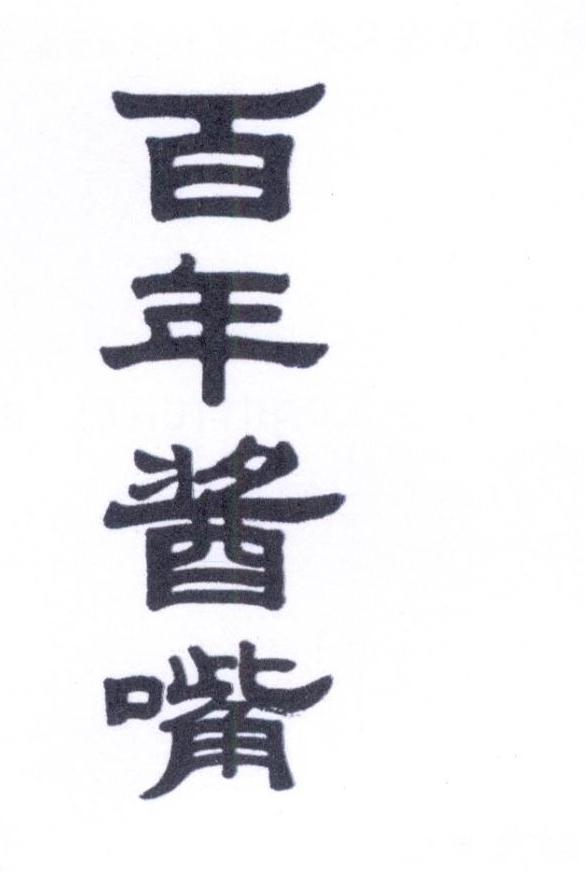 百年酱嘴